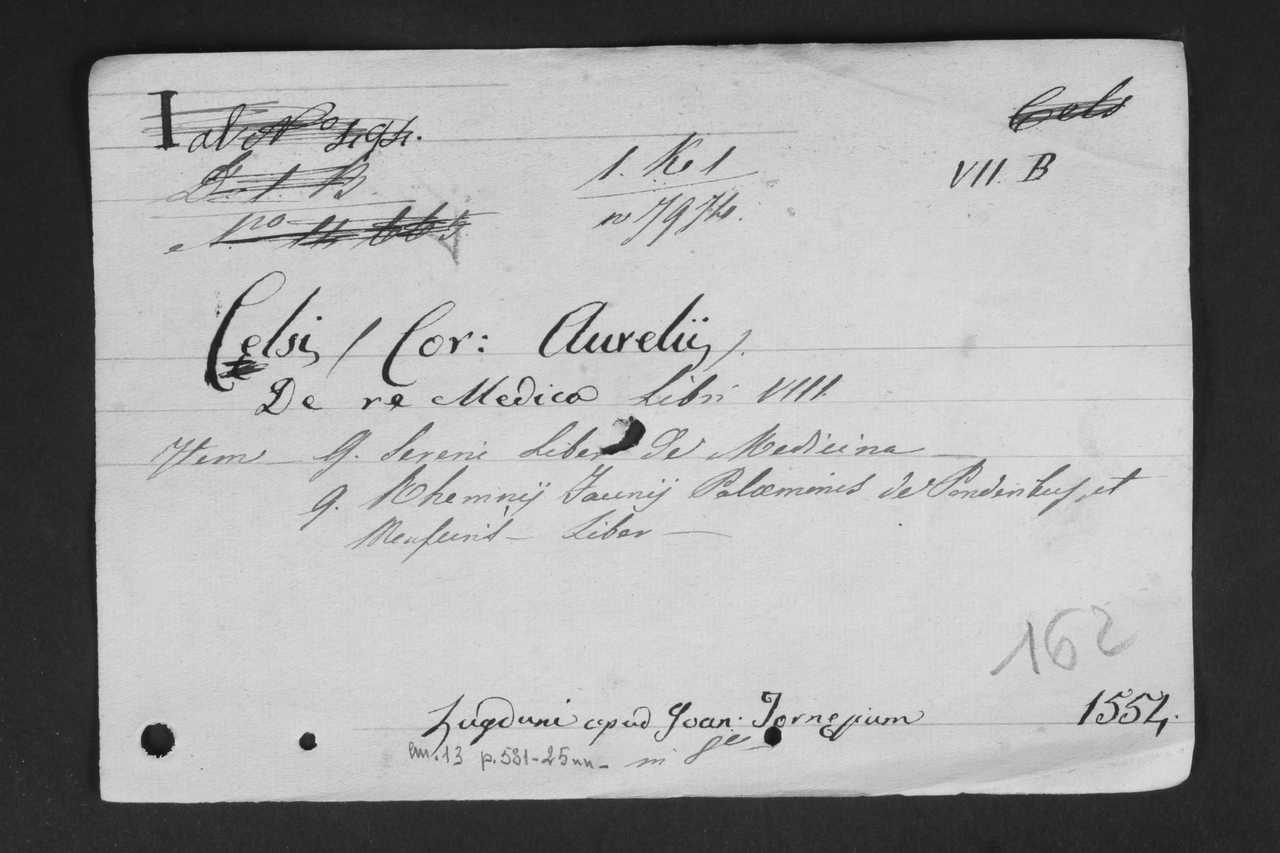 I
N° 494.
D. 1. B
N° 14665
1. K 1
n° 7974.
Cels
VII. B
Celsi, (Cor: Aurelii,).
De re Medica Libri VIII
Item G. Sereni Liber de Medicina
Q. Rhemnij Fannij Palæmonis de Ponderibus, et
Mensuris Liber
162
Lugduni apud Joan. Tornesium 1554.
lnn. 13 p. 531-25 nn in 8º